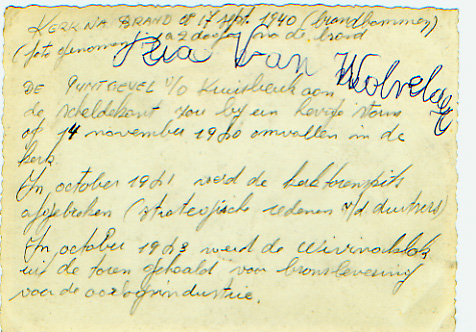 KERK NA BRAND OP 17 sept. 1940 (brandbommen)
(foto genomen 1 à 2 dagen na de brand
Ria Van Wolvelaer
DE PUNTGEVEL v/d Kruisbeuk aan
de scheldekant zou bij een hevige storm
of 14 november 1940 omvallen in de
kerk.
In october 1941 werd de kerktorenspits
afgebroken (strategische redenen v/d duitsers)
In october 1943 werd de
uit de toren gehaald voor bronslevering
voor de oorlogsindustrie.